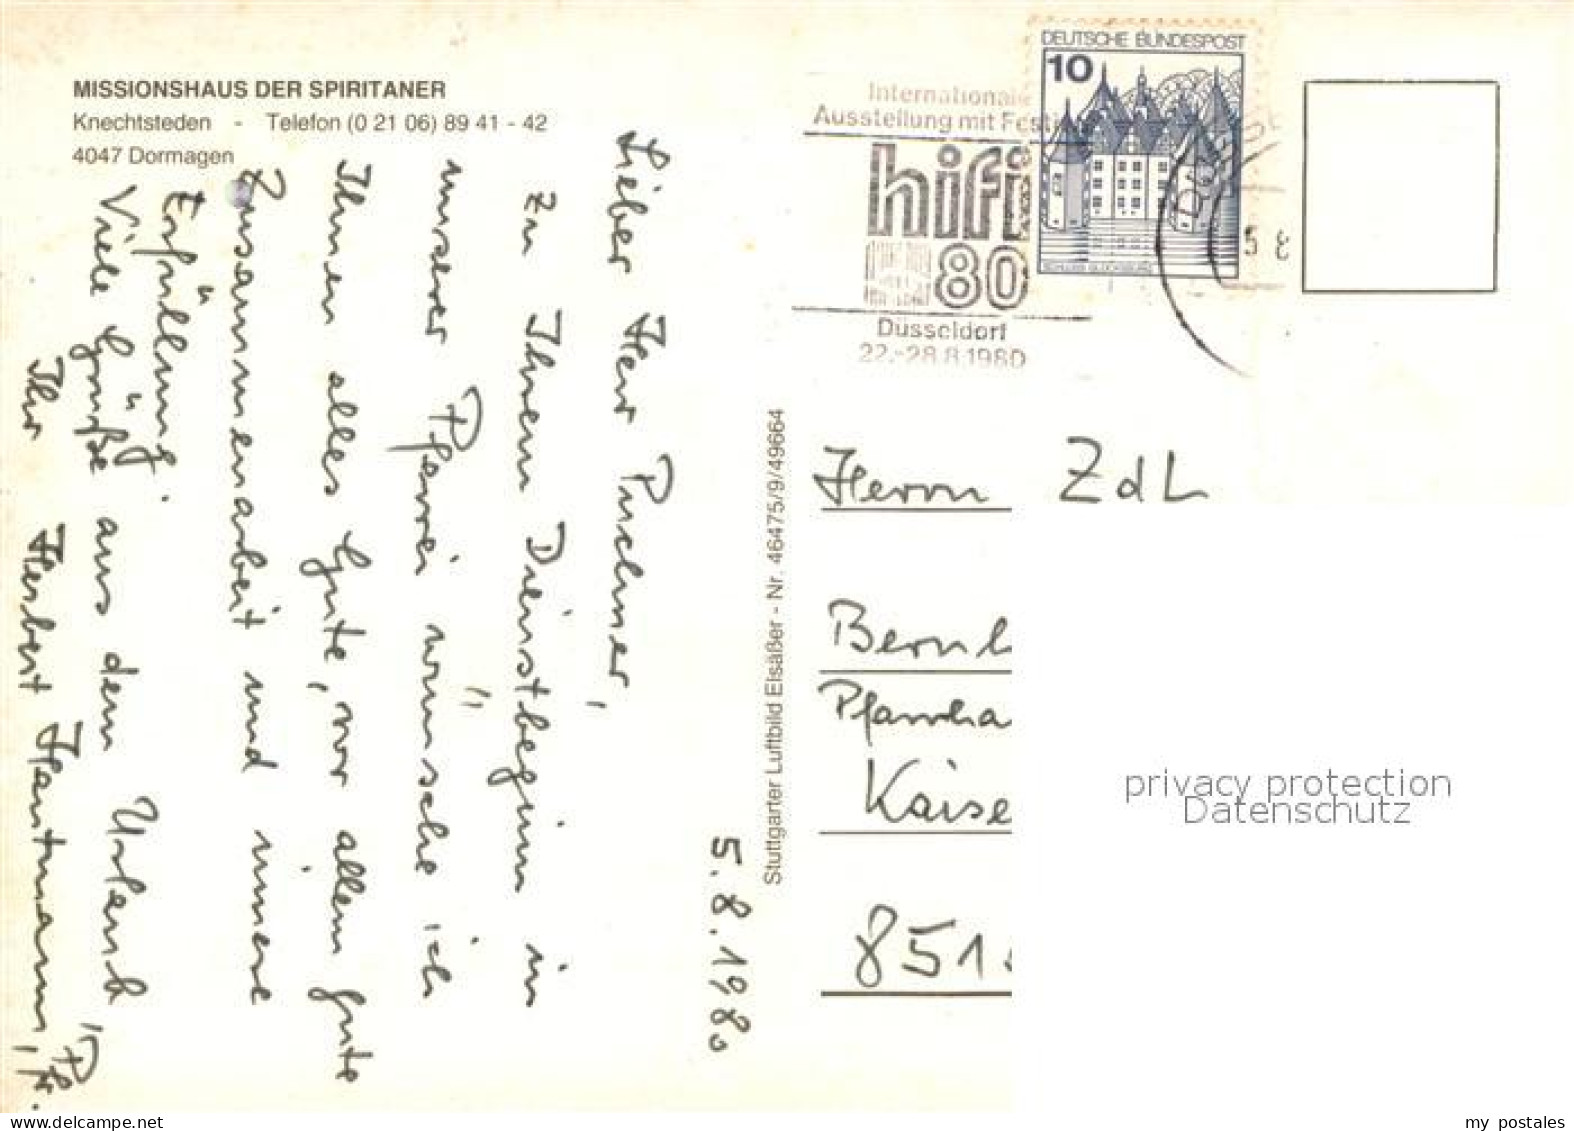 MISSIONSHAUS DER SPIRITANER
Knechtsteden - Telefon (0 21 06) 89 41 - 42
4047 Dormagen
5.8.1980
Lieber Herr Puchner,
zu Ihrem Dienstbeginn in
unserer Pfarrei wünsche ich
Ihnen alles Gute, vor allem gute
Zusammenarbeit und innere
Erfüllung.
Viele Grüße aus dem Urlaub
Ihr Herbert Hautmann, Pfr.
Stuttgarter Luftbild Elsäßer - Nr. 46475/9/49664
Internationale
Ausstellung mit Festi
hifi
80
Düsseldorf
22.-28.8.1980
DEUTSCHE BUNDESPOST
10
SCHLOSS GLÜCKSBURG
5 8
Herrn ZdL
Bernh
Pfarrha
Kaise
851
privacy protection
Datenschutz
www.delcampe.net
my_postales